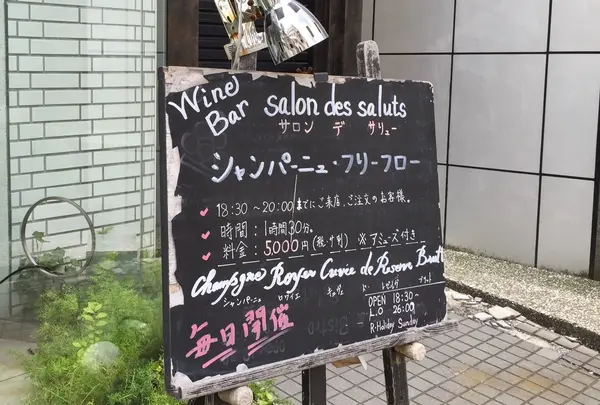 Wine Bar salon des saluts
サロン デ サリュー
シャンパーニュ・フリーフロー
18:30 ~ 20:00までにご来店、ご注文のお客様。
時間：1時間30分。
料金：5,000円(税・サ別) ※アミューズ付き
Champagne Royer Cuvée de Reserve Brut
シャンパーニュ ロワイエ キュヴェ ド・レゼルヴ ブリュット
毎日開催
OPEN 18:30~
L.O 26:00
R.Holiday Sunday